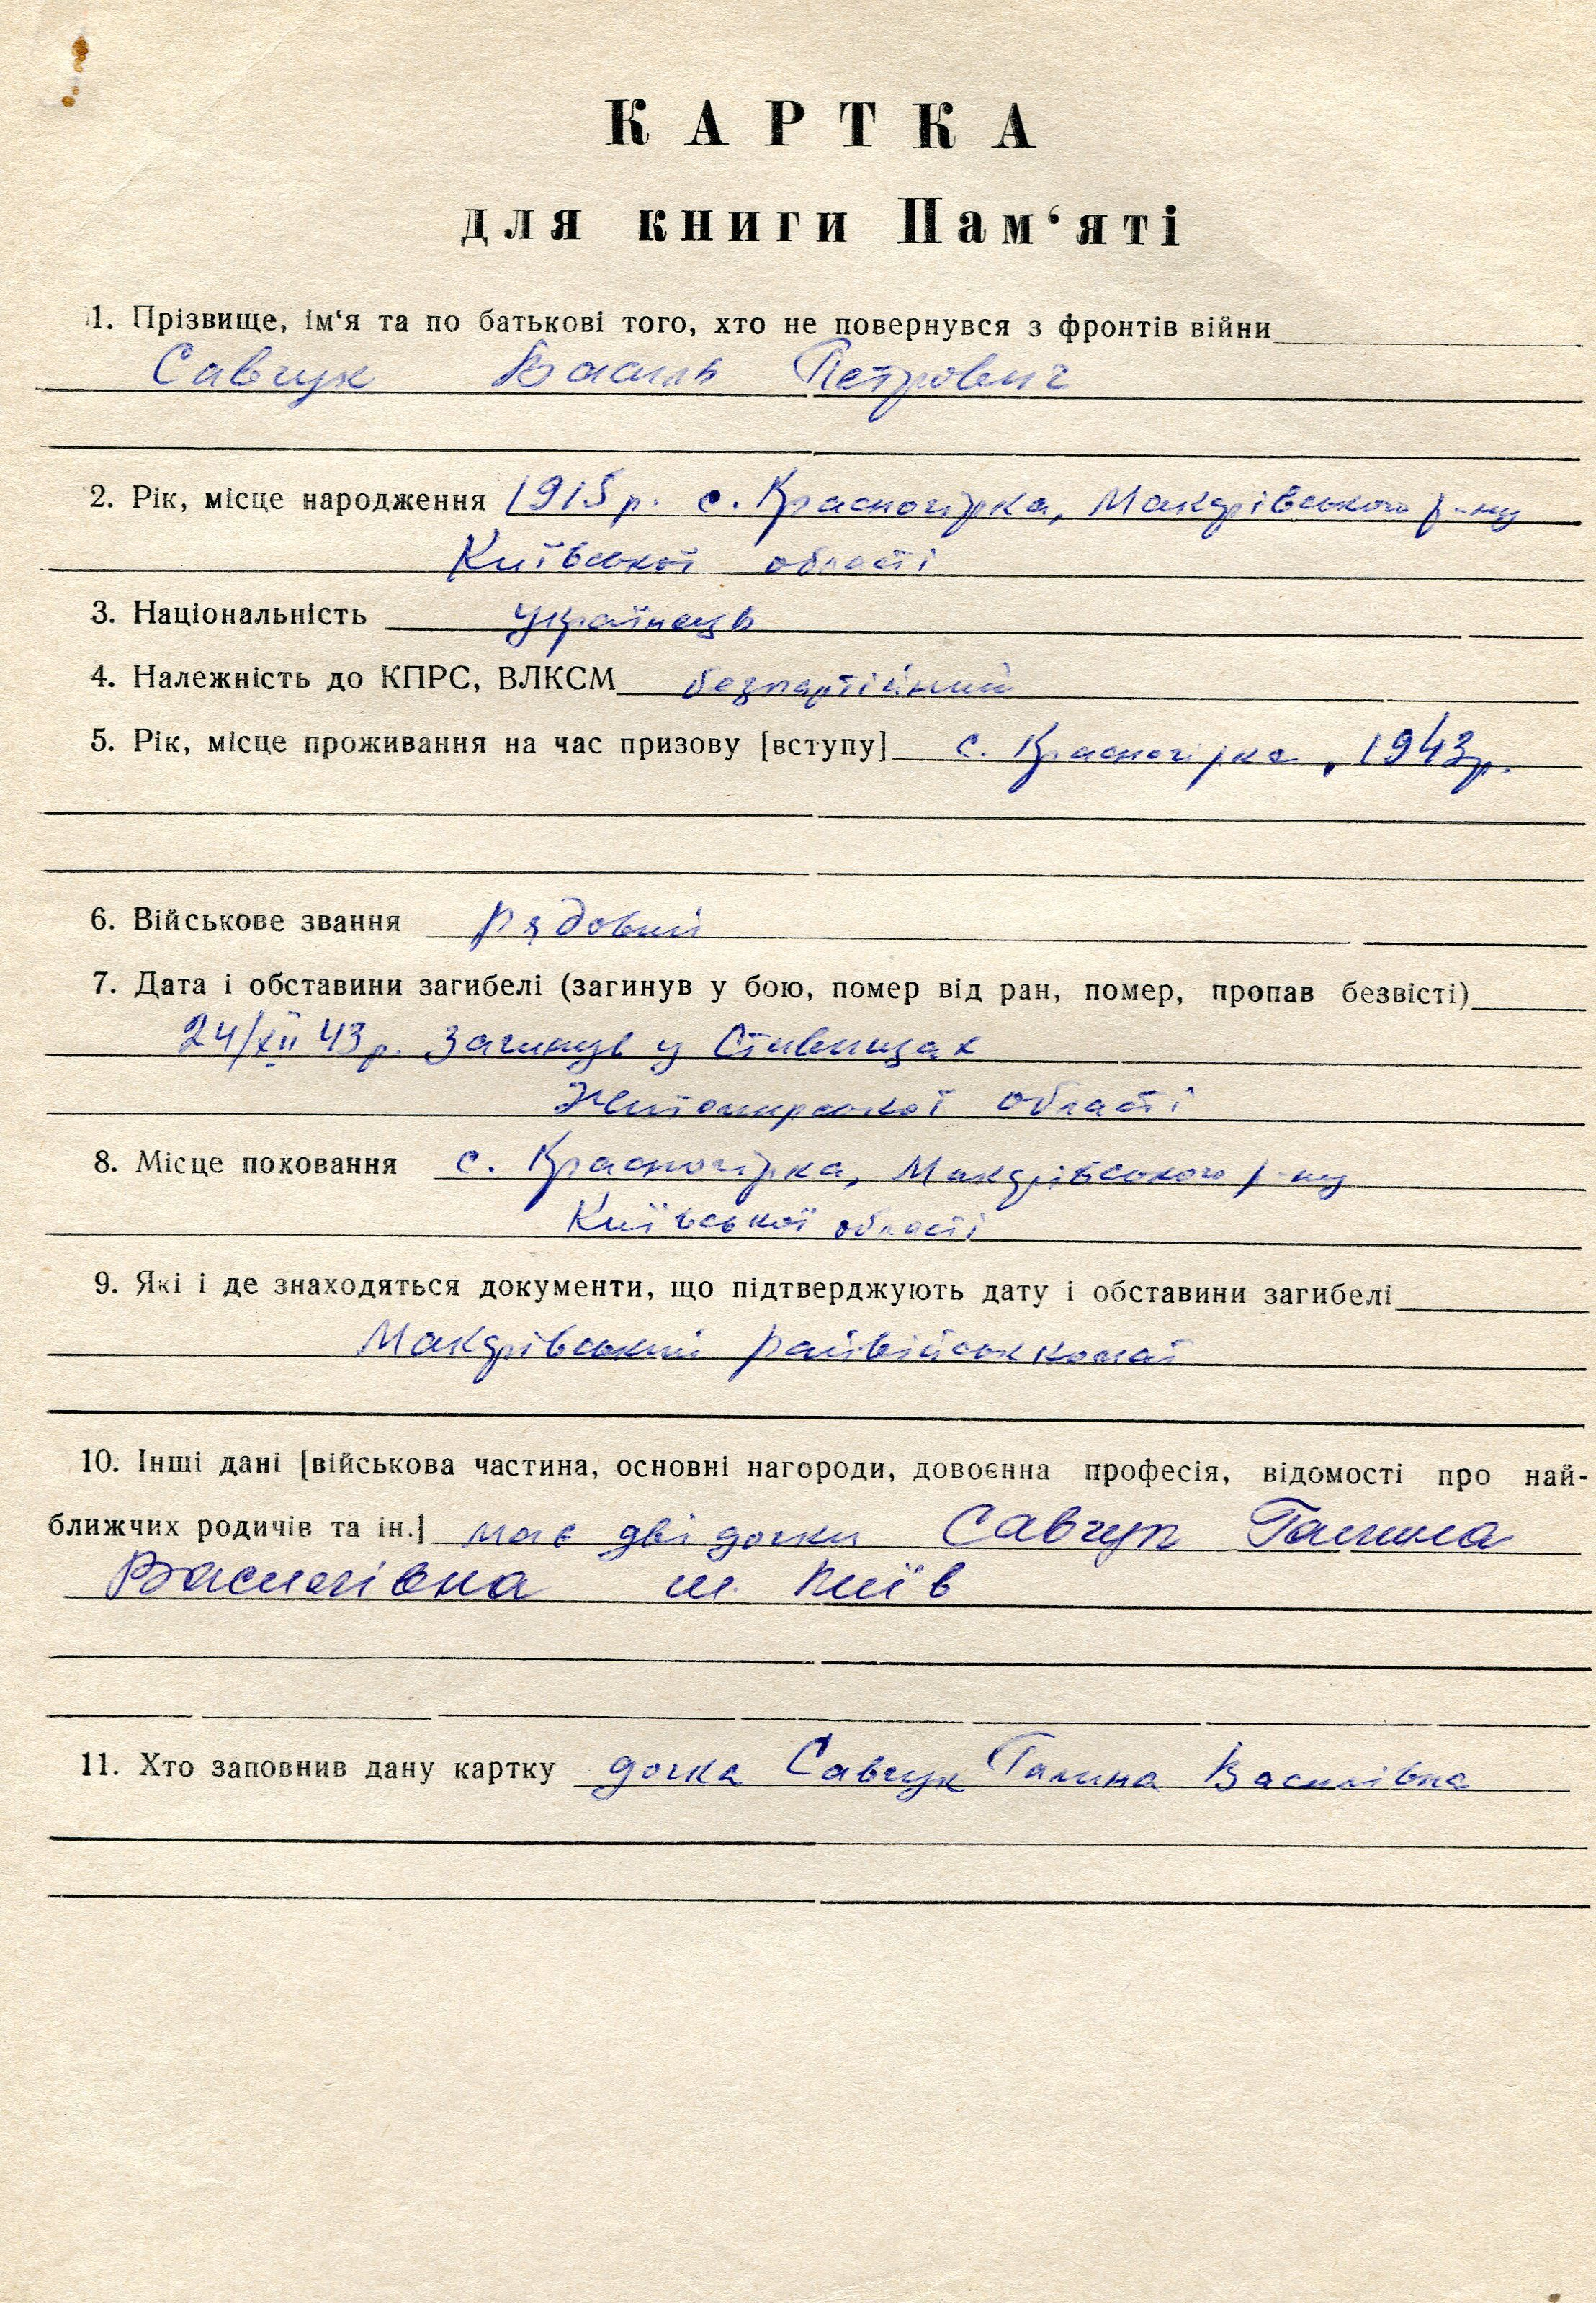 КАРТКА
для книги Пам‘яті
1. Прізвище, ім‘я та по батькові того, хто не повернувся з фронтів війни
Савчук Василь Петрович
2. Рік, місце народження 1915 р. с. Красногірка, Макарівського р-ну
Київської області
3. Національність українець
4. Належність до КПРС, ВЛКСМ безпартійний
5. Рік, місце проживання на час призову [вступу] с. Красногірка, 1943 р.
6. Військове звання рядовий
7. Дата і обставини загибелі (загинув у бою, помер від ран, помер, пропав безвісті)
24/XII 43 р. Загинув у Ставищах
Житомирської області
8. Місце поховання с. Красногірка, Макарівського р-ну
Київської області
9. Які і де знаходяться документи, що підтверджують дату і обставини загибелі
Макарівський райвійськкомат
10. Інші дані [військова частина, основні нагороди, довоєнна професія, відомості про най-
ближчих родичів та ін.] має дві дочки Савчук Галина
Василівна м. Київ
11. Хто заповнив дану картку дочка Савчук Галина Василівна